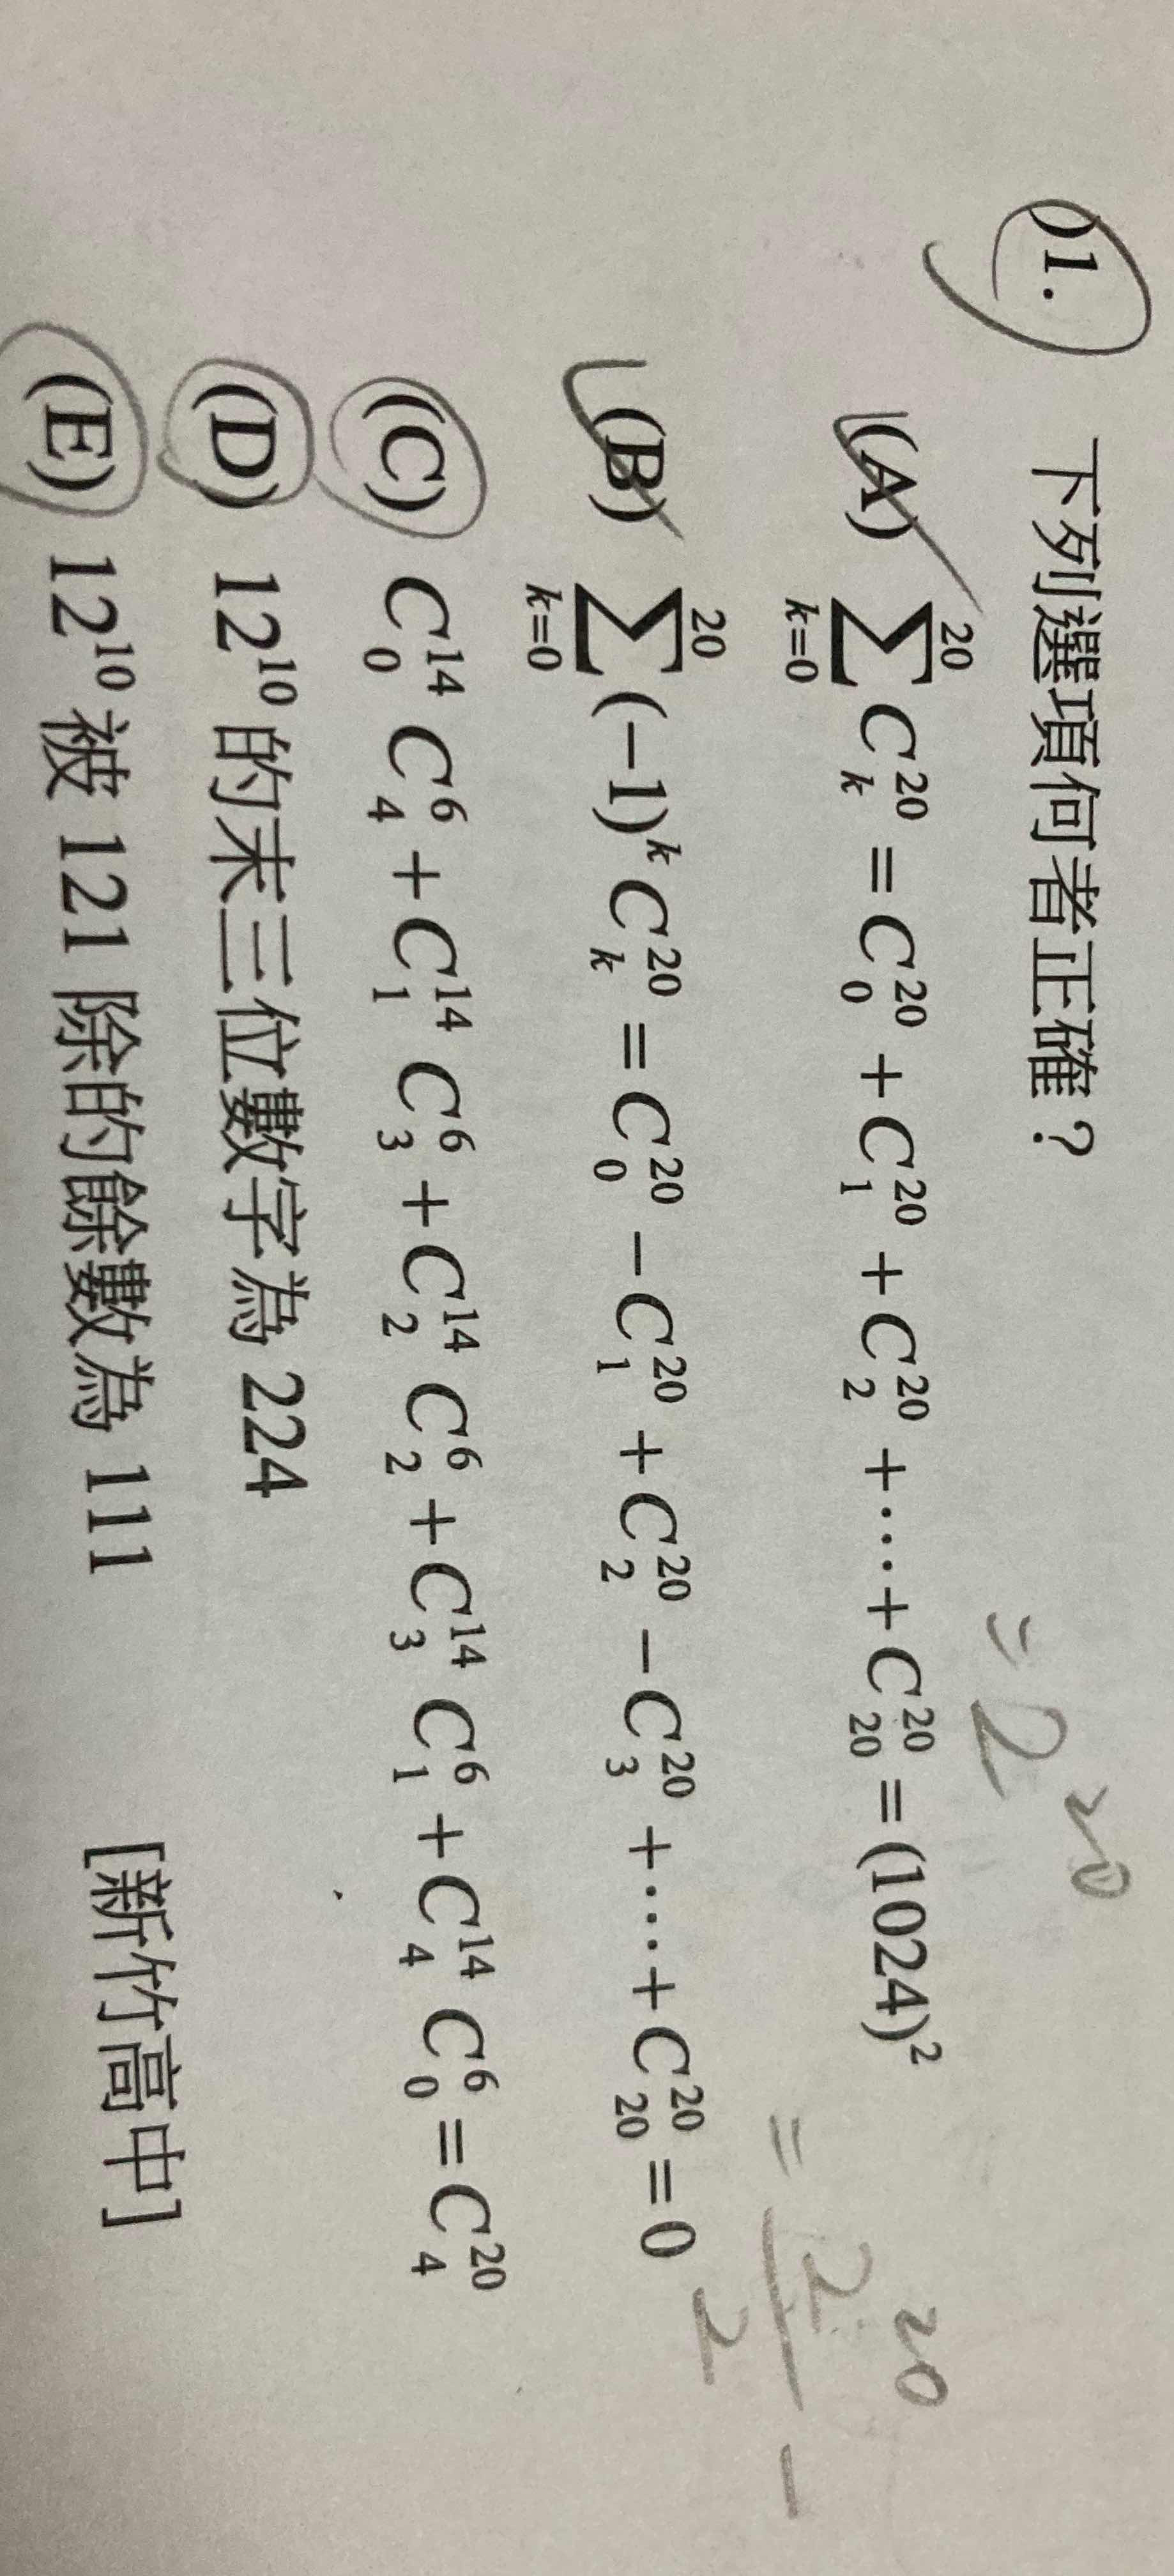 )1. 下列選項何者正確？
= 2²⁰
(A) ∑_{k=0}^{20} C_k^{20} = C_0^{20} + C_1^{20} + C_2^{20} + ⋯ + C_{20}^{20} = (1024)²
= 2²⁰ / 2 −
(B) ∑_{k=0}^{20} (−1)^k C_k^{20} = C_0^{20} − C_1^{20} + C_2^{20} − C_3^{20} + ⋯ + C_{20}^{20} = 0
(C) C_0^{14} C_4^6 + C_1^{14} C_3^6 + C_2^{14} C_2^6 + C_3^{14} C_1^6 + C_4^{14} C_0^6 = C_4^{20}
(D) 12¹⁰ 的末三位數字為 224
(E) 12¹⁰ 被 121 除的餘數為 111 [新竹高中]